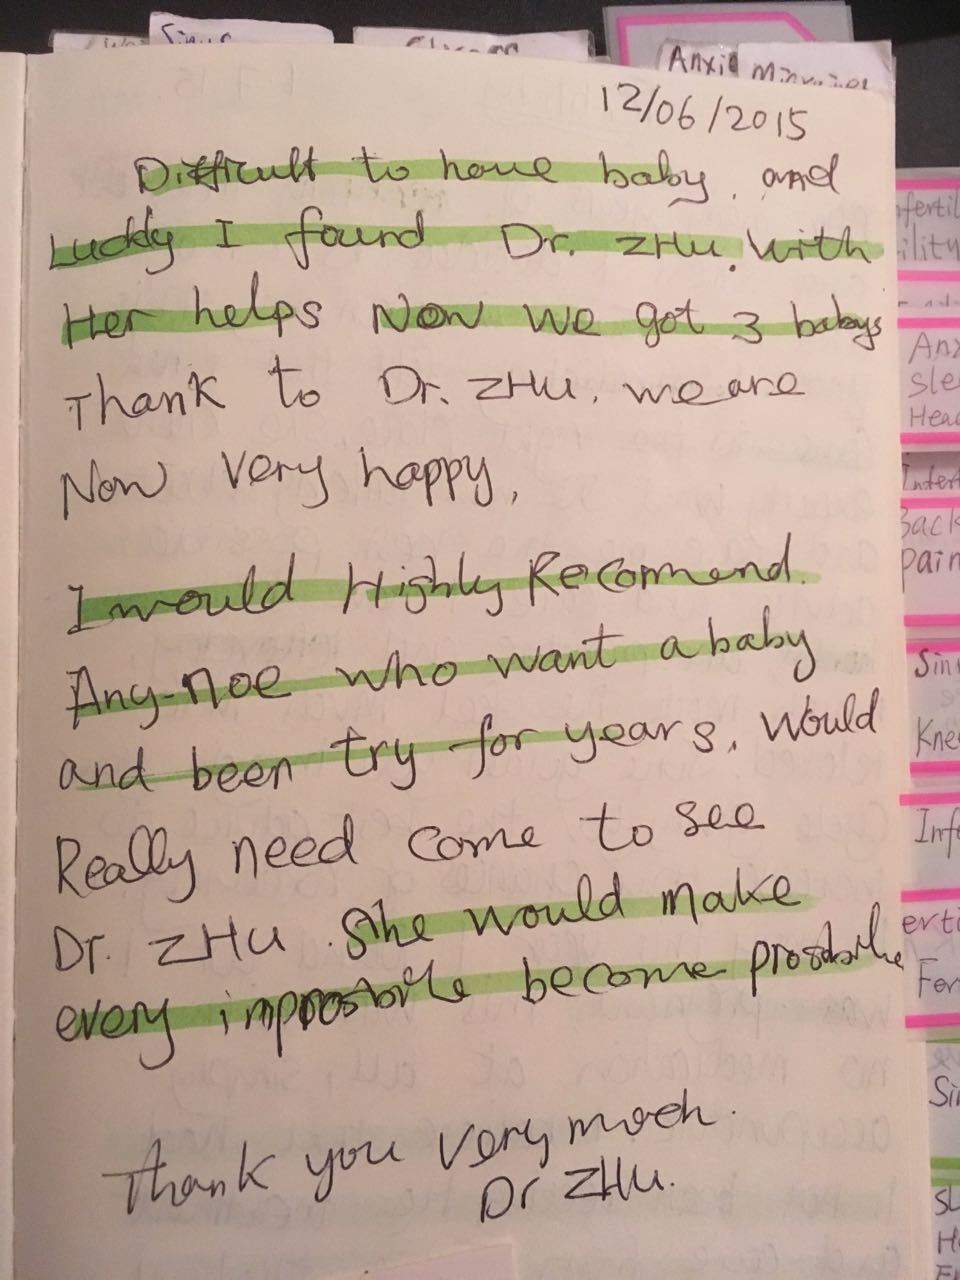 Sinus
Anxie
12/06/2015
Difficult to have baby, and
Luckly I found Dr. ZHU. With
Her helps Now we got 3 babys
Thank to Dr. ZHU. we are
Now very happy,
I would Highly Recommend.
Any-noe who want a baby
and been try for years, would
Really need come to see
Dr. ZHU. She would make
every impossible become possible
Thank you very moch.
Dr ZHU.
nfertil
ility
Anx
sle
Head
Infert
Back
pain
Sin
Knee
Inf
erti
For
Si
SL
H